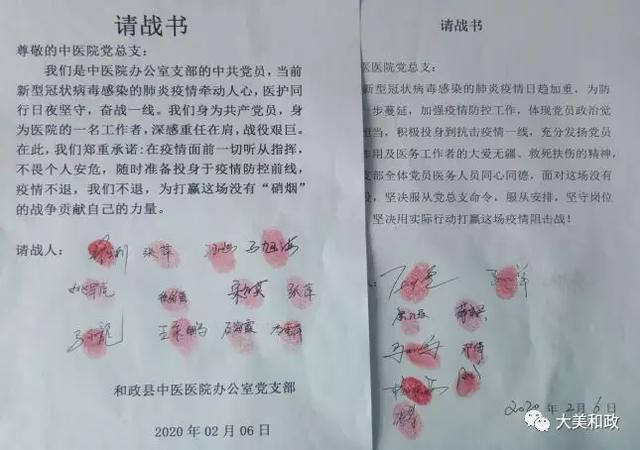 请战书
尊敬的中医院党总支：
我们是中医院办公室支部的中共党员，当前
新型冠状病毒感染的肺炎疫情牵动人心，医护同
行日夜坚守，奋战一线。我们身为共产党员，身
为医院的一名工作者，深感重任在肩，战役艰巨。
在此，我们郑重承诺：在疫情面前一切听从指挥，
不畏个人安危，随时准备投身于疫情防控前线，
疫情不退，我们不退，为打赢这场没有“硝烟”
的战争贡献自己的力量。
请战人：
张萍
张萍
和政县中医医院办公室党支部
2020年02月06日
请战书
医医院党总支：
新型冠状病毒感染的肺炎疫情日趋加重，为防
一步蔓延，加强疫情防控工作，体现党员政治觉
担当，积极投身到抗击疫情一线，充分发扬党员
作用及医务工作者的大爱无疆、救死扶伤的精神，
支部全体党员医务人员同心同德，面对这场没有
役，坚决服从党总支命令，服从安排，坚守岗位
坚决用实际行动打赢这场疫情阻击战！
2020年2月6日
大美和政